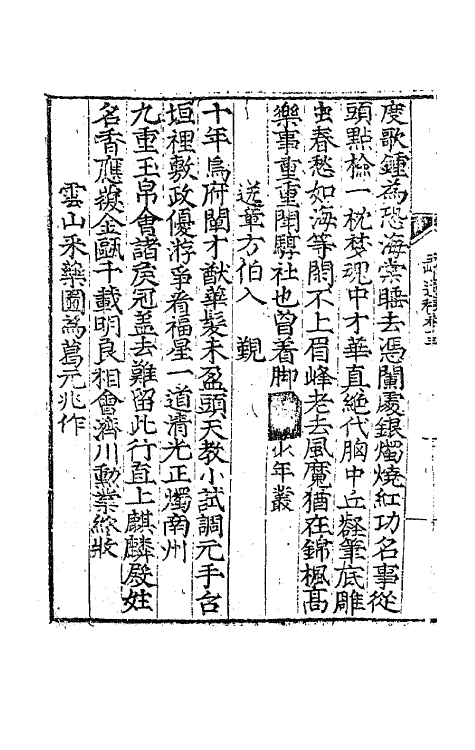 度歌鍾為恐海棠睡去憑闌處銀燭燒紅功名事從
頭點檢一枕梦魂中才華真絕代胸中丘壑筆底雕
虫春愁如海等閑不上眉峰老去風魔猶在錦楓髙
樂事重重閒騷社也曾着脚少年叢
送章方伯入 覲
十年烏府闡才猷華髮未盈頭天教小試調元手台
垣裡敷政優游爭看福星一道清光正燭南州
九重玉帛會諸侯冠盖去難留此行直上麒麟殿姓
名香應覆金甌千載明良相會濟川勳業終收
雲山采藥圖為葛元兆作